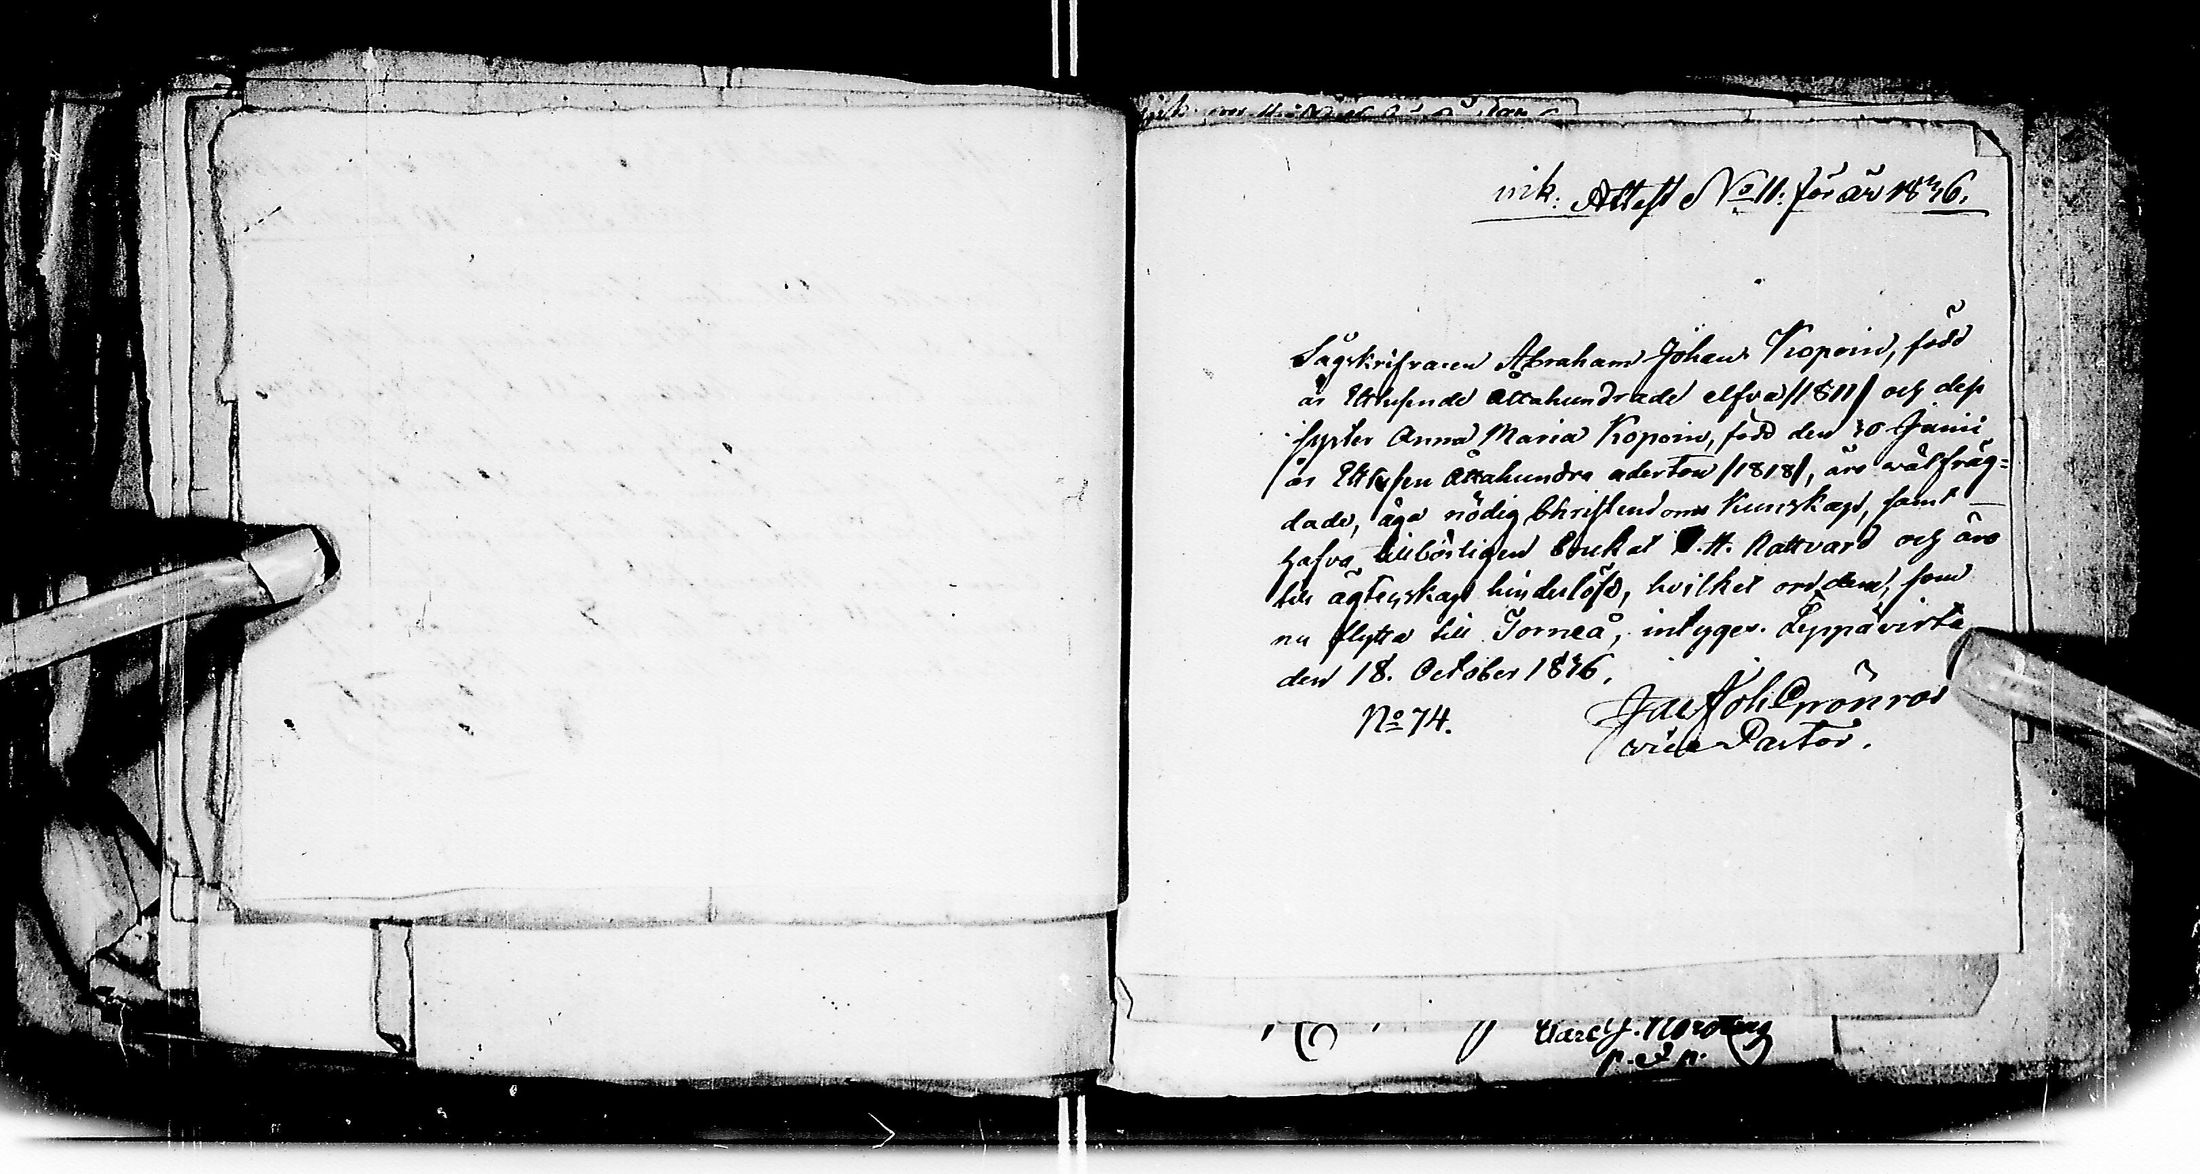 ink. Attest No 11. för år 1846.
Sågskrifvaren Abraham Johan Kopoin, född
år Ettusende Åttahundrade elfva /1811/ och dess
syster Anna Maria Kopoin, född den 10 Junii
år Ettusen Åttahundra aderton /1818/, äro wälfräg=
dade, äga nödig Christendoms Kunskap, samt
hafva tillbörligen brukat H. H. Nattvard och äro
till ägtenskap hinderlöse, hvilket om dem, som
nu flytta till Torneå, intygar. Leppävirta
den 18. October 1846.
Joh Grönroos
No 74.
vice Pastor.